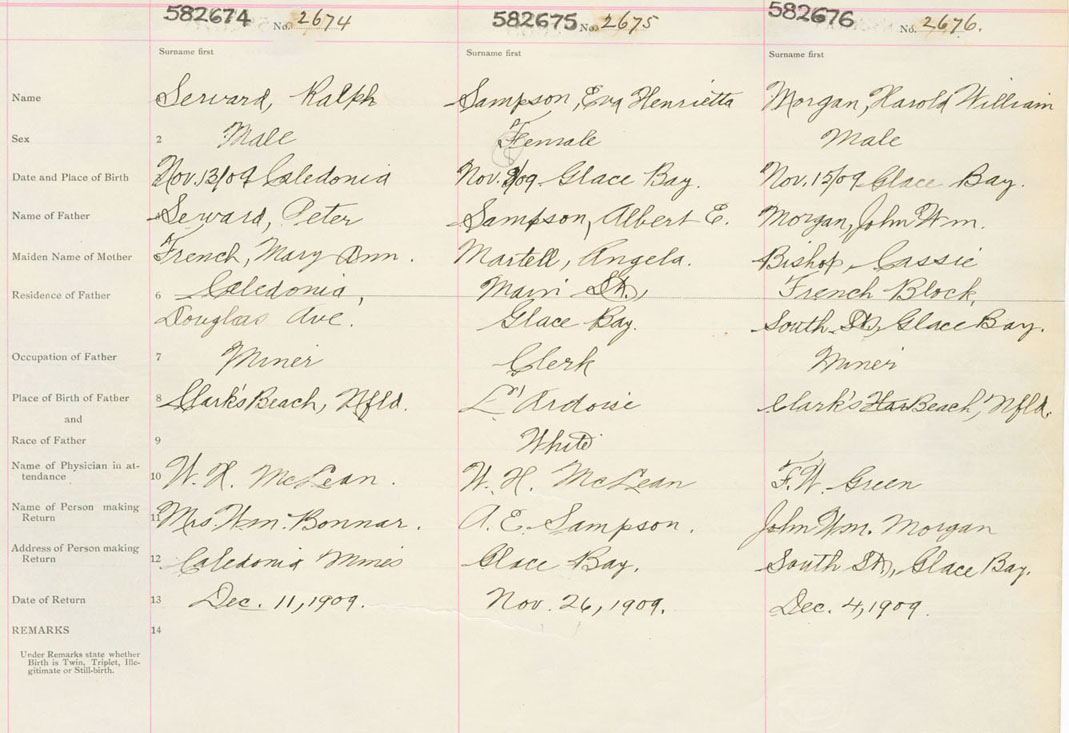 582674 No. 2674 582675 No. 2675 582676 No. 2676.
Surname first Surname first Surname first
Name 1 Serward, Ralph Sampson, Eva Henrietta Morgan, Harold William
Sex 2 Male Female Male
Date and Place of Birth 3 Nov. 13/09 Caledonia Nov. /09 Glace Bay. Nov. 15/09 Glace Bay.
Name of Father 4 Seward, Peter Sampson, Albert E. Morgan, John Wm.
Maiden Name of Mother French, Mary Ann. Martell, Angela. Bishop, Cassie
Residence of Father 6 Caledonia, Main St., French Block,
Douglas Ave. Glace Bay. South St., Glace Bay.
Occupation of Father 7 Miner Clerk Miner
Place of Birth of Father 8 Clark's Beach, Nfld. L'Ardoise Clark's Har Beach, Nfld.
and
Race of Father 9 White
Name of Physician in at-
tendance 10 W. H. McLean. W. H. McLean F. W. Green
Name of Person making
Return 11 Mrs. Wm. Bonnar. A. E. Sampson. John Wm. Morgan
Address of Person making
Return 12 Caledonia Mines Glace Bay. South St., Glace Bay.
Date of Return 13 Dec. 11, 1909. Nov. 26, 1909. Dec. 4, 1909.
REMARKS 14
Under Remarks state whether
Birth is Twin, Triplet, Ille-
gitimate or Still-birth.